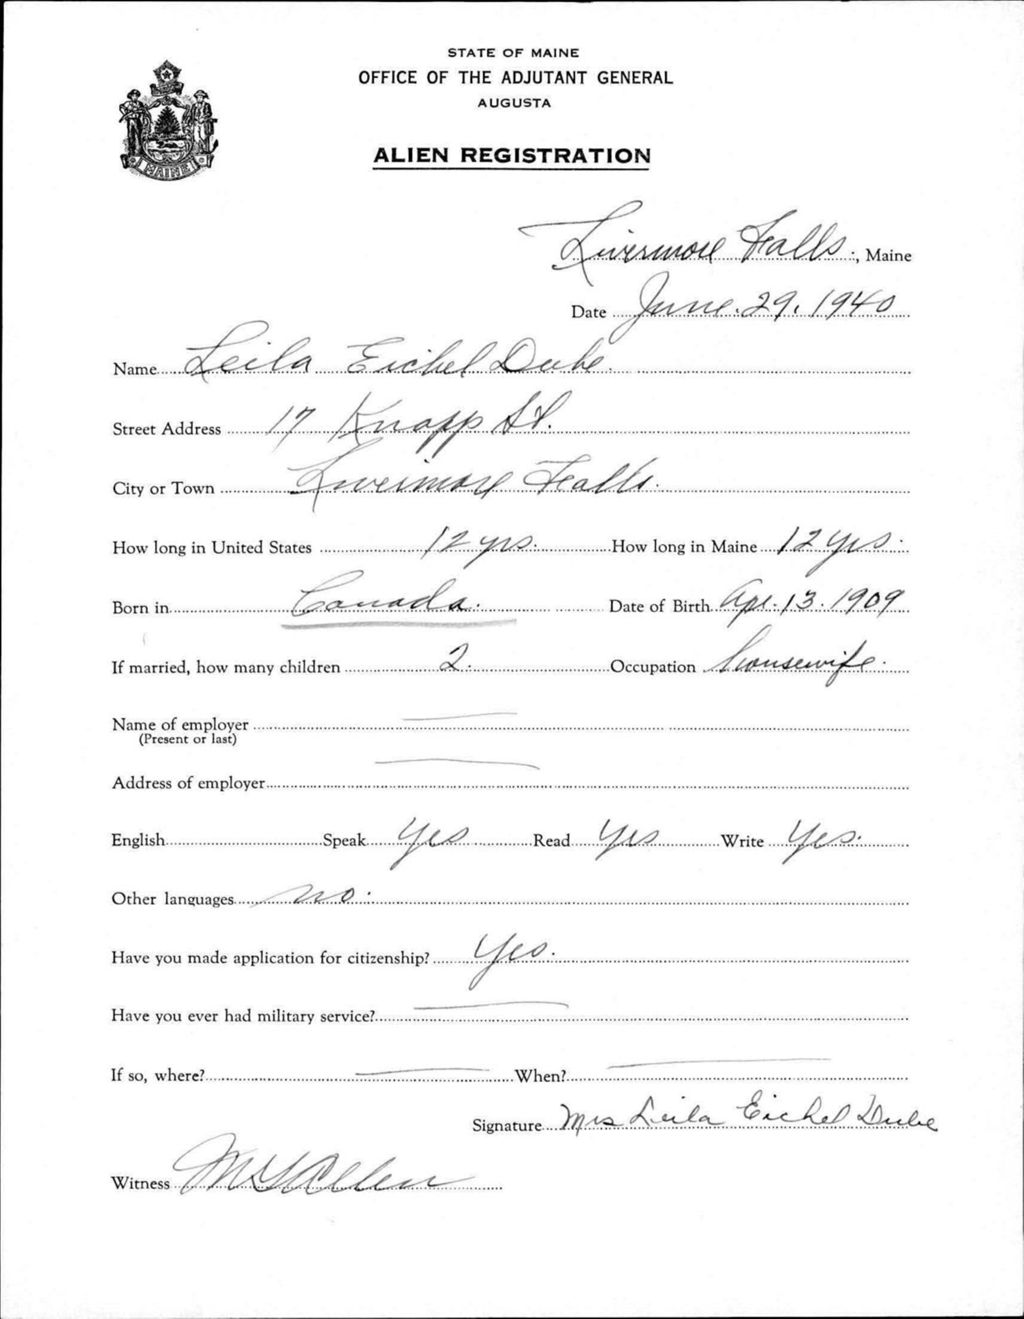 STATE OF MAINE
OFFICE OF THE ADJUTANT GENERAL
AUGUSTA
ALIEN REGISTRATION
MAINE
Livermore Falls, Maine
Date June 29, 1940
Name Leila Eichel Dube
Street Address 17 Knapp St.
City or Town Livermore Falls.
How long in United States 12 yrs. How long in Maine 12 yrs.
Born in Canada. Date of Birth Apr. 13. 1909
If married, how many children 2. Occupation housewife.
Name of employer
(Present or last)
Address of employer
English Speak Yes Read Yes Write Yes.
Other languages no.
Have you made application for citizenship? Yes.
Have you ever had military service?
If so, where? When?
Signature Mrs Leila Eichel Dube
Witness